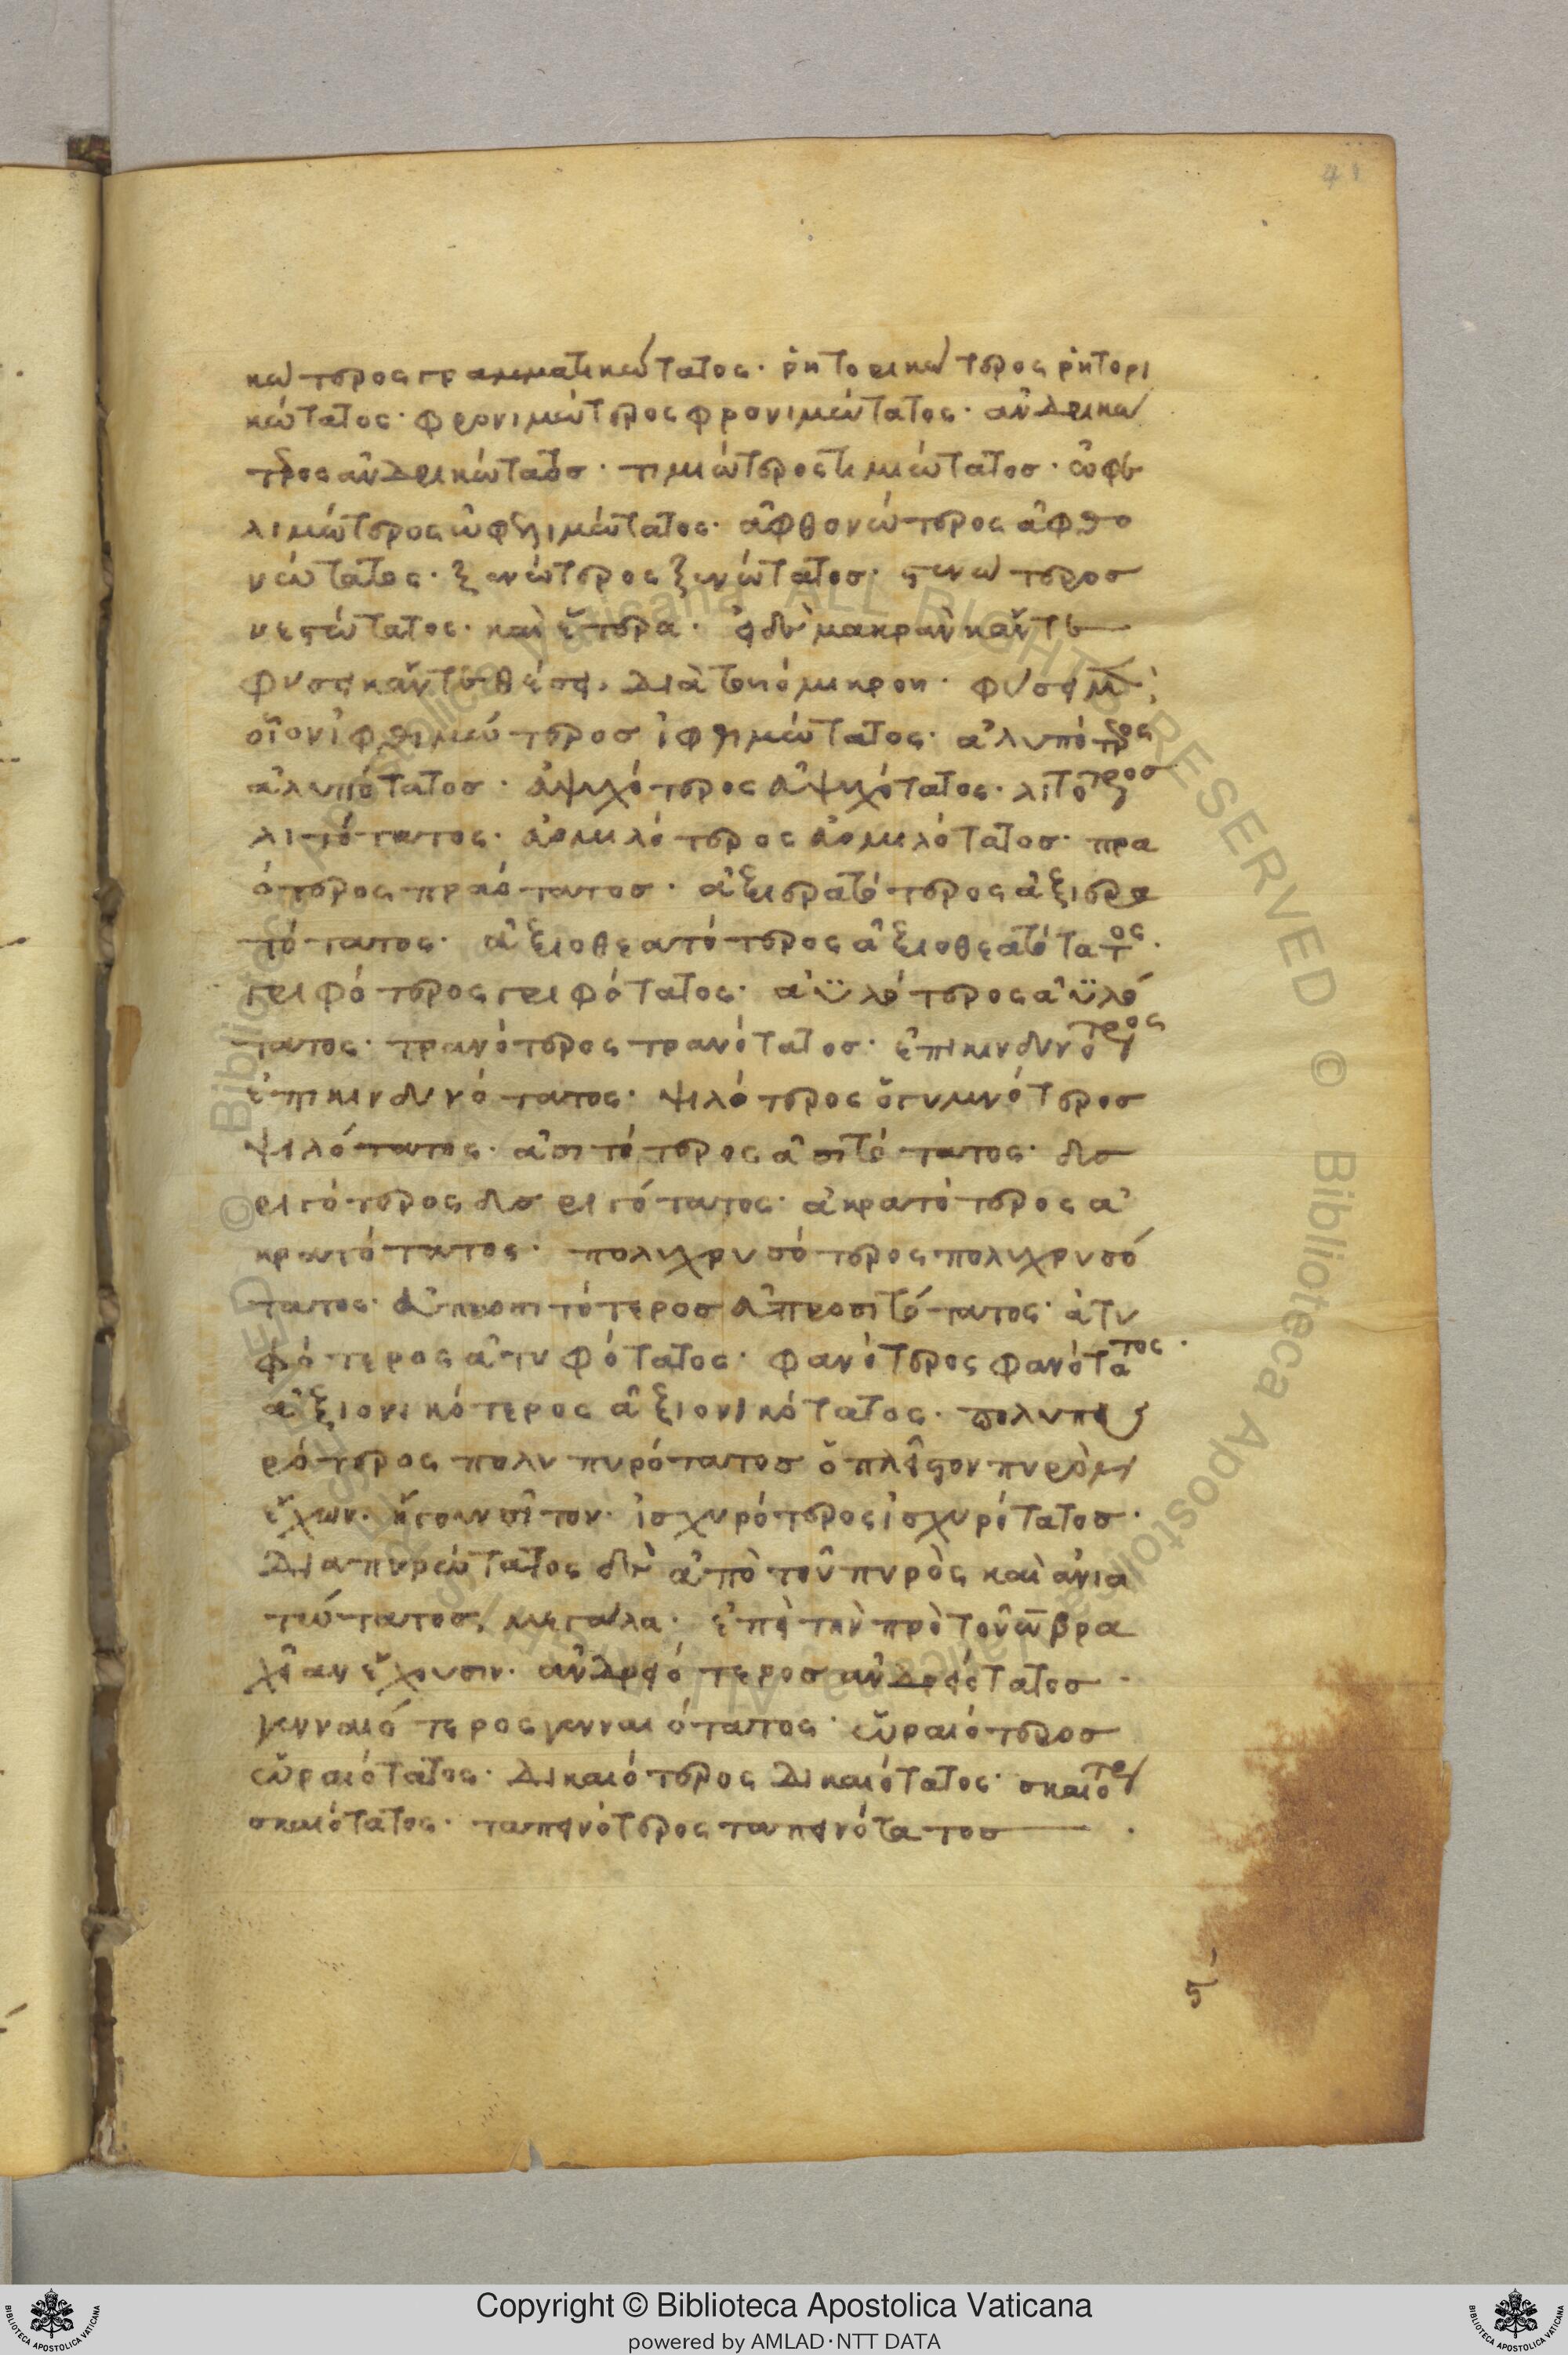 41
κώτερος γραμματικώτατος· ῥητορικώτερος ῥητορι
κώτατος· φρονιμώτερος φρονιμώτατος· ἀνδρικώ
τερος ἀνδρικώτατος· τιμιώτερος τιμιώτατος· ὠφε
λιμώτερος ὠφελιμώτατος· ἀφθονώτερος ἀφθο
νώτατος· ξενώτερος ξενώτατος· στενώτερος
στενώτατος· καὶ ἕτερα· εἰ δὲ μακρὰν κἄν τε
φύσει κἄν τε θέσει, διὰ τοῦ ο μικροῦ· φύσει μὲν;
οἷον ἰφθιμώτερος ἰφθιμώτατος· ἀλυπότερος
ἀλυπότατος· ἀψυχότερος ἀψυχότατος· λιτότερος
λιτότατος· πρα
ότερος πραότατος·
τότατος· ἀξιοθεατότερος ἀξιοθεατότατος·
γριφότερος γριφότατος· ἀϋλότερος ἀϋλό
τατος· τρανότερος τρανότατος· ἐπικινδυνότερος
ἐπικινδυνότατος· ψιλότερος ὁ γυμνότερος
ψιλότατος· ἀσιτότερος ἀσιτότατος· δυσ
ριγότερος δυσριγότατος· ἀκρατότερος ἀ
κρατότατος· πολυχρυσότερος πολυχρυσό
τατος· ἀπροσιτότερος ἀπροσιτότατος· ἀτυ
φότερος ἀτυφότατος· φανότερος φανότατος·
ἀξιονικότερος ἀξιονικότατος· πολυπυ
ρότερος πολυπυρότατος ὁ πλεῖστον πυρὸν
ἔχων· ἤγουν σῖτον· ἰσχυρότερος ἰσχυρότατος·
διαπυρώτατος δὲ ἀπὸ τοῦ πυρὸς καὶ ἀνια
ρώτατος μεγάλα· ἐπεὶ τὴν πρὸ τοῦ ω βρα
χεῖαν ἔχουσιν· ἀνδρειότερος ἀνδρειότατος·
γενναιότερος γενναιότατος· ὡραιότερος
ὡραιότατος· δικαιότερος δικαιότατος· σκαιότερος
σκαιότατος· ταπεινότερος ταπεινότατος
Copyright © Biblioteca Apostolica Vaticana
powered by AMLAD·NTT DATA